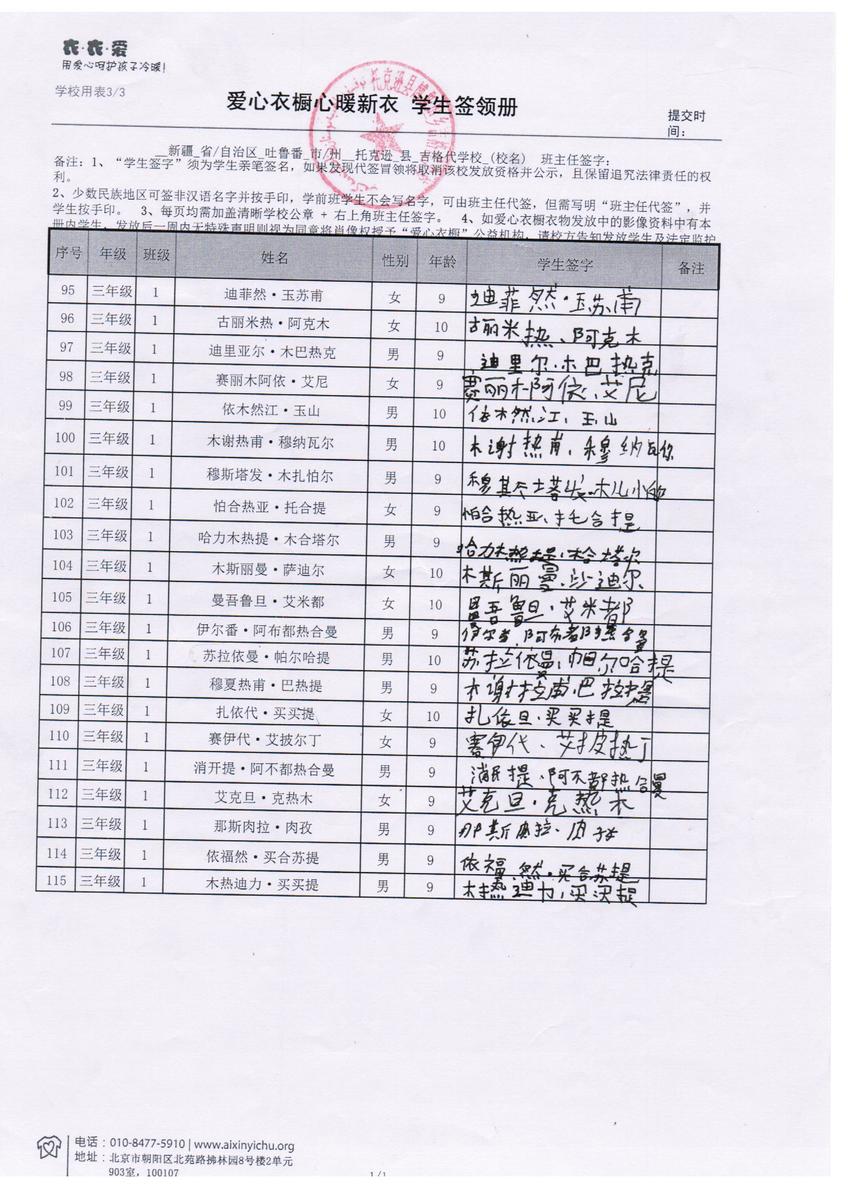 衣·衣·爱
用爱心呵护孩子冷暖!
学校用表3/3
爱心衣橱心暖新衣 学生签领册
提交时
间:
__新疆_省/自治区_吐鲁番_市/州__托克逊_县_吉格代学校_(校名) 班主任签字:
备注: 1、“学生签字”须为学生亲笔签名, 如果发现代签冒领将取消该校发放资格并公示, 且保留追究法律责任的权
利。
2、少数民族地区可签非汉语名字并按手印, 学前班学生不会写名字, 可由班主任代签, 但需写明“班主任代签”, 并
学生按手印。 3、每页均需加盖清晰学校公章 + 右上角班主任签字。 4、如爱心衣橱衣物发放中的影像资料中有本
册内学生, 发放后一周内无特殊声明则视为同意将肖像权授予“爱心衣橱”公益机构, 请校方告知发放学生及法定监护
序号 年级 班级 姓名 性别 年龄 学生签字 备注
95 三年级 1 迪菲然·玉苏甫 女 9 迪菲然·玉苏甫
96 三年级 1 古丽米热·阿克木 女 10 古丽米热、阿克木
97 三年级 1 迪里亚尔·木巴热克 男 9 迪里尔·木巴热克
98 三年级 1 赛丽木阿依·艾尼 女 9 赛丽木阿依、艾尼
99 三年级 1 依木然江·玉山 男 10 依木然江、玉山
100 三年级 1 木谢热甫·穆纳瓦尔 男 10 木谢热甫、穆纳瓦尔
101 三年级 1 穆斯塔发·木扎怕尔 男 9 穆斯塔发·木
102 三年级 1 怕合热亚·托合提 女 9 怕合热亚、托合提
103 三年级 1 哈力木热提·木合塔尔 男 9 哈力木热提·木合塔尔
104 三年级 1 木斯丽曼·萨迪尔 女 10 木斯丽曼·沙迪尔
105 三年级 1 曼吾鲁旦·艾米都 女 10 曼吾鲁旦·艾米都
106 三年级 1 伊尔番·阿布都热合曼 男 9 伊尔番 阿布都热合曼
107 三年级 1 苏拉依曼·帕尔哈提 男 10 苏拉依曼、帕尔哈提
108 三年级 1 穆夏热甫·巴热提 男 9 木谢热甫·巴拉提
109 三年级 1 扎依代·买买提 女 10 扎依旦·买买提
110 三年级 1 赛伊代·艾披尔丁 女 9 赛伊代、艾披热丁
111 三年级 1 消开提·阿不都热合曼 男 9 消开提·阿不都热合曼
112 三年级 1 艾克旦·克热木 女 9 艾克旦·克热木
113 三年级 1 那斯肉拉·肉孜 男 9 那斯肉拉·肉孜
114 三年级 1 依福然·买合苏提 男 9 依福然·买合苏提
115 三年级 1 木热迪力·买买提 男 9 木热迪力·买买提
电话: 010-8477-5910 | www.aixinyichu.org
地址: 北京市朝阳区北苑路拂林园8号楼2单元
903室, 100107
1/1